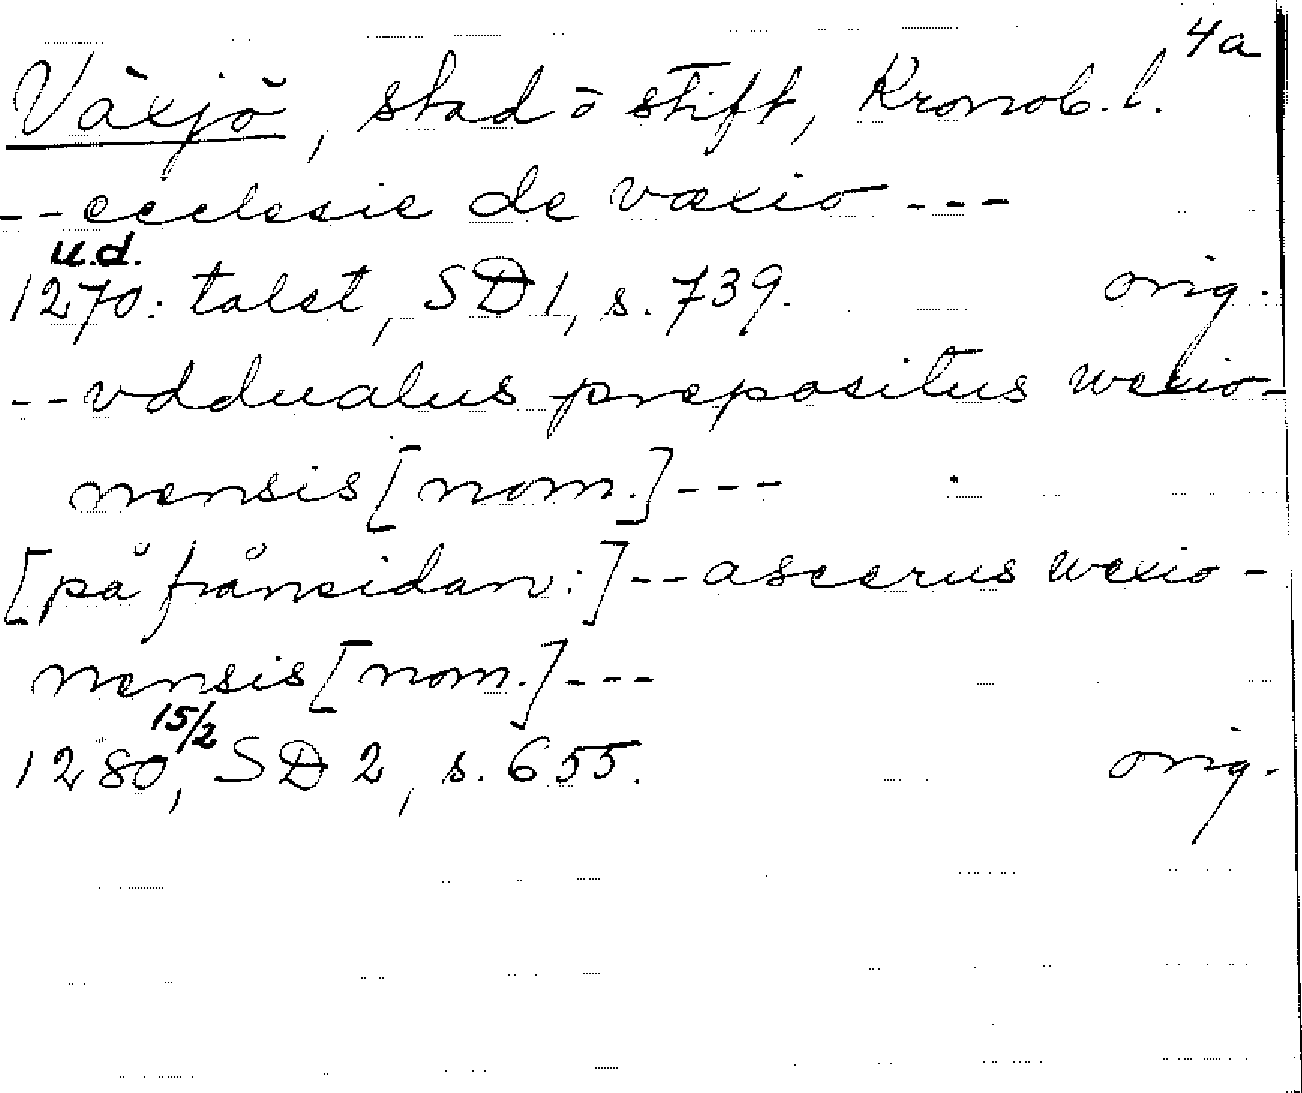 4a
Växjö, stad o stift, Kronob. l.
-- ecclesie de væxio ---
u.d.
1270: talet, SD 1, s. 739. orig.
-- vddualus prepositus wexio-
nensis [nom.] ---
[på frånsidan:] -- ascerus wexio-
nensis [nom.] ---
15/2
1280, SD 2, s. 655. orig.